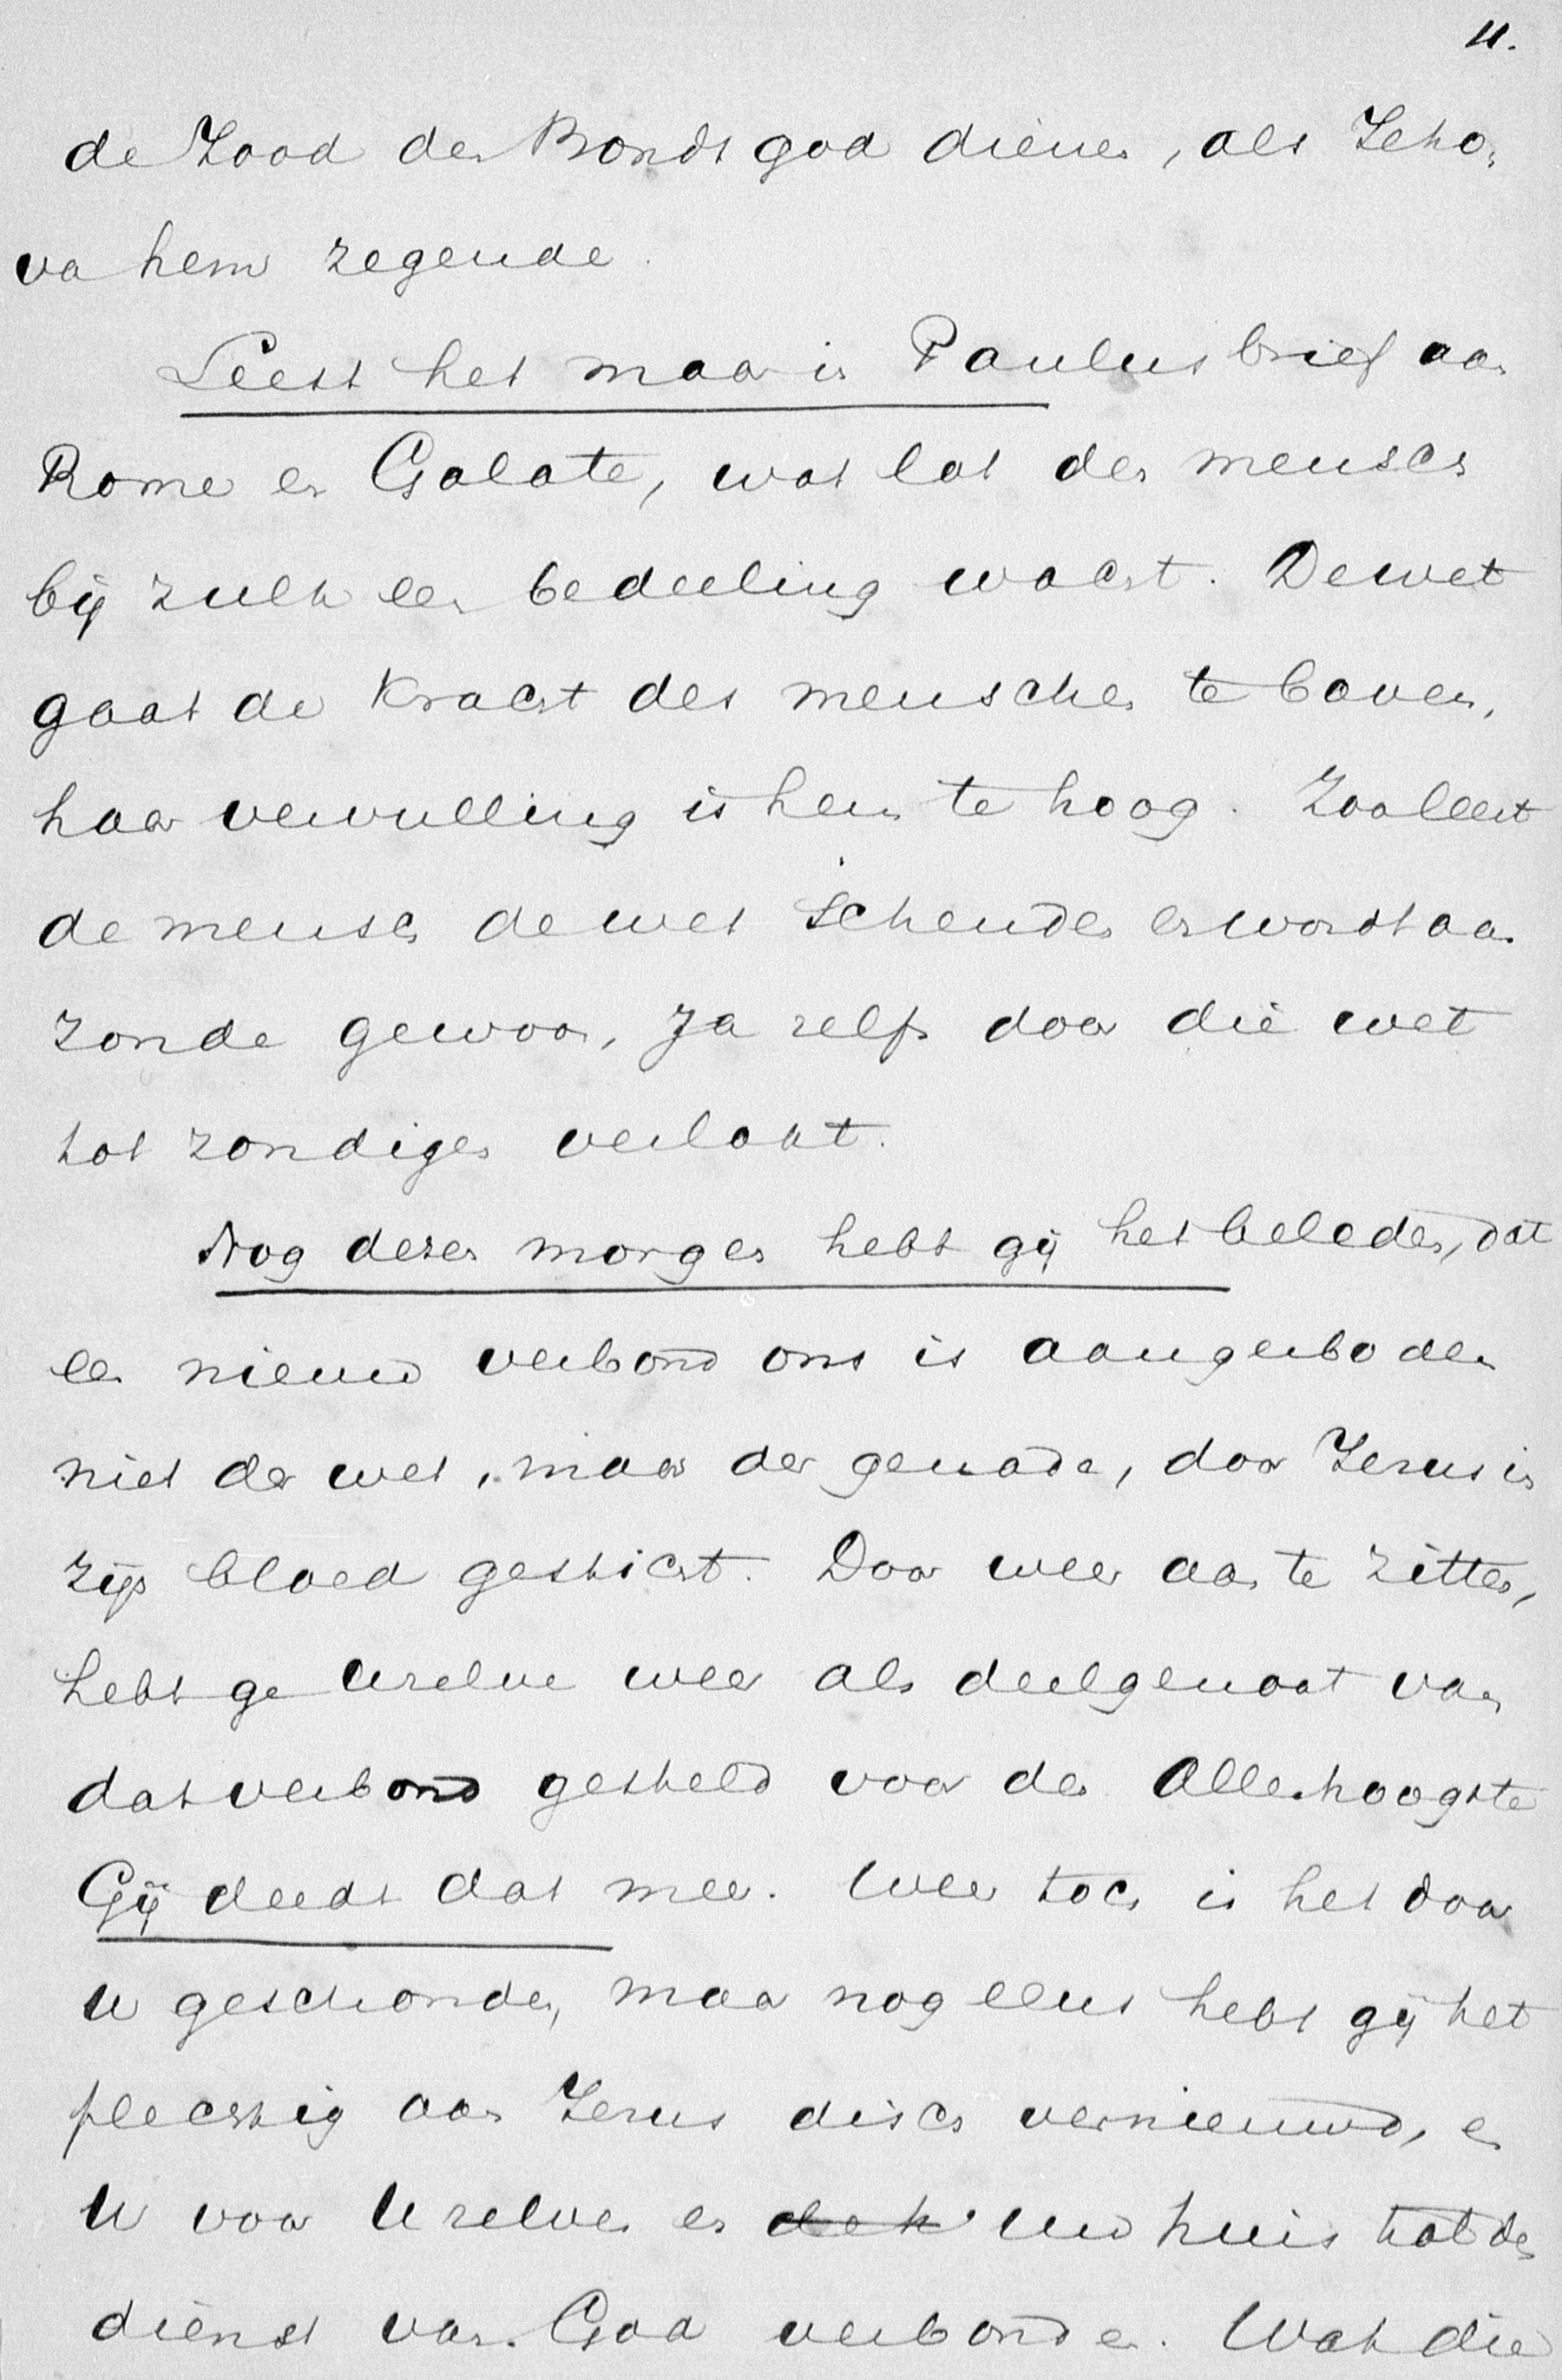 11.
de Jood den Bondsgod dienen, als Jeho-
va hem zegende.
Leest het maar in Paulus brief aan
Rome en Galate, wat lot den mensch
bij zulk een bedeeling wacht. De wet
gaat de kracht des menschen te boven,
haar vervulling is hem te hoog. Zoo leert
de mensch de wet schenden en wordt aan
zonde gewoon, ja zelfs door die wet
tot zondigen verlokt.
Nog dezen morgen hebt gij het beleden, dat
een nieuw verbond ons is aangeboden
niet der wet, maar der genade, door Jezus in
zijn bloed gesticht. Door weer aan te zitten,
hebt ge Uzelve weer als deelgenoot van
dat verbond gesteld voor den Allerhoogste
Gij deedt dat mee. Weer toch is het door
U geschonden, maar nog eens hebt gij het
plechtig aan Jezus disch vernieuwd, en
U voor Uzelven en ook uw huis tot den
dienst van God verbonden. Wat die